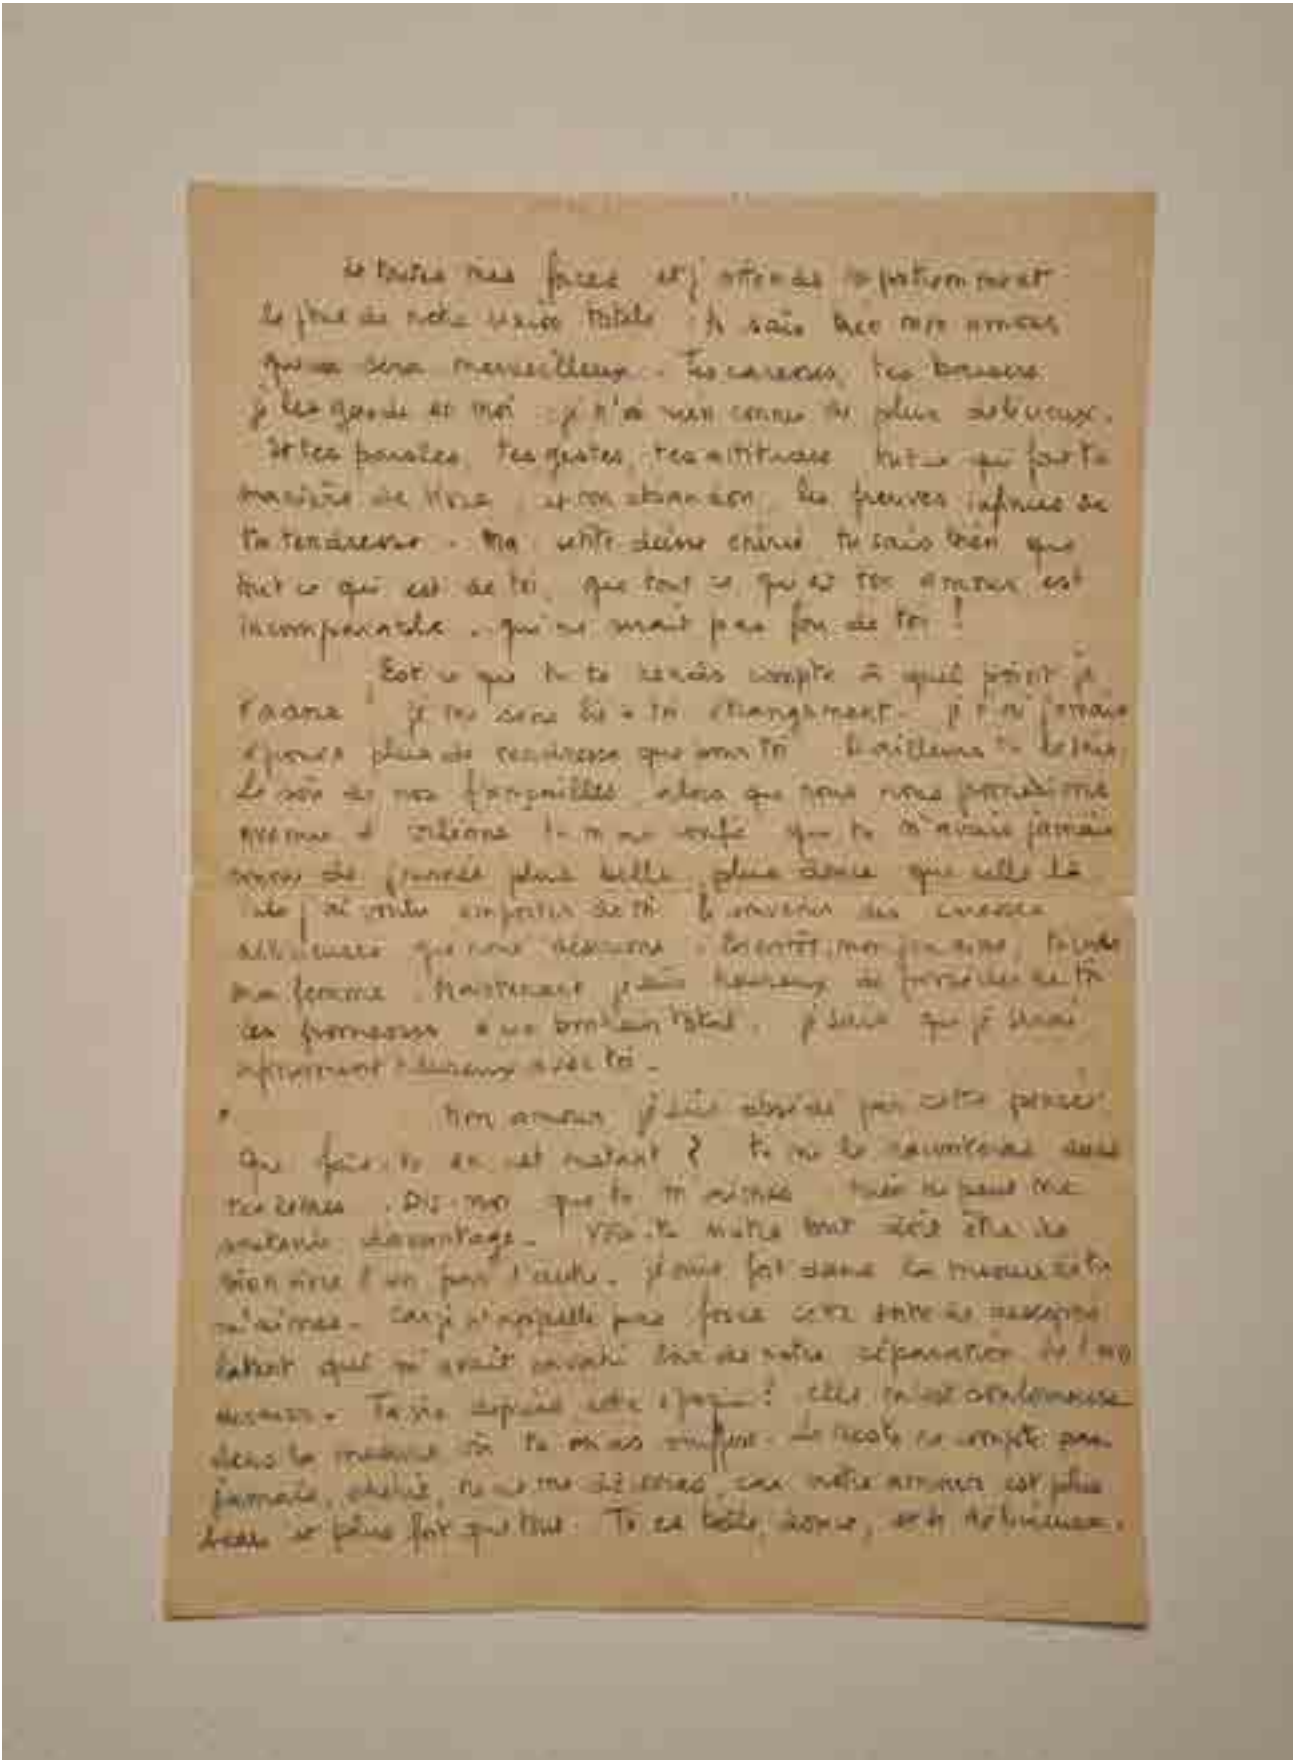 de toutes mes forces et j'attends impatiemment
le jour de notre union totale. tu sais bien mon amour
que ce sera merveilleux. Tes caresses, tes baisers
je les garde en moi. je n'ai rien connu de plus délicieux.
Et tes paroles, tes gestes, tes attitudes tout ce qui fait ta
manière de vivre, et ton abandon, les preuves infinies de
ta tendresse. Ma petite déesse chérie tu sais bien que
tout ce qui est de toi, que tout ce qui est ton amour est
incomparable. qui ne serait pas fou de toi !
Est ce que tu te rends compte à quel point je
t'aime je me sens lié à toi étrangement. je n'ai jamais
éprouvé plus de tendresse que pour toi D'ailleurs tu le sais.
Le soir de nos fiançailles, alors que nous nous promenions
avenue d'Orléans tu m'as confié que tu n'avais jamais
de journée plus belle, plus douce que celle là
j'ai voulu emporter de toi le souvenir des caresses
délicieuses que nous désirions. Bientôt, mon, tu seras
ma femme. Maintenant je suis heureux de de toi
ces promesses d'un bonheur total. je sais que je serai
infiniment heureux avec toi.
Mon amour je suis obsédé par cette pensée
Que fais-tu en cet instant ? tu me le raconteras dans
tes lettres. Dis-moi que tu m'aimes rien ne peut me
soutenir davantage. Vois-tu notre but doit être de
bien vivre l'un pour l'autre. je suis fort dans la mesure où tu
m'aimes. Car je n'appelle pas force cette sorte de désespoir
latent qui m'avait envahi lors de notre séparation de l'an
dernier. Ta vie depuis cette époque ! elle m'est douloureuse
dans la mesure où tu m'as. Le reste ne compte pas
jamais, chérie, tu ne me, car notre amour est plus
beau et plus fort que tout. Tu es belle, douce, et si délicieuse.